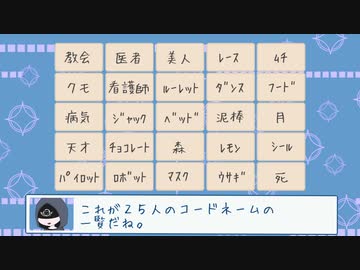 教会 医者 美人 レース ムチ
クモ 看護師 ルーレット ダンス フード
病気 ジャック ベッド 泥棒 月
天才 チョコレート 森 レモン シール
パイロット ロボット マスク ウサギ 死
これが２５人のコードネームの
一覧だね。